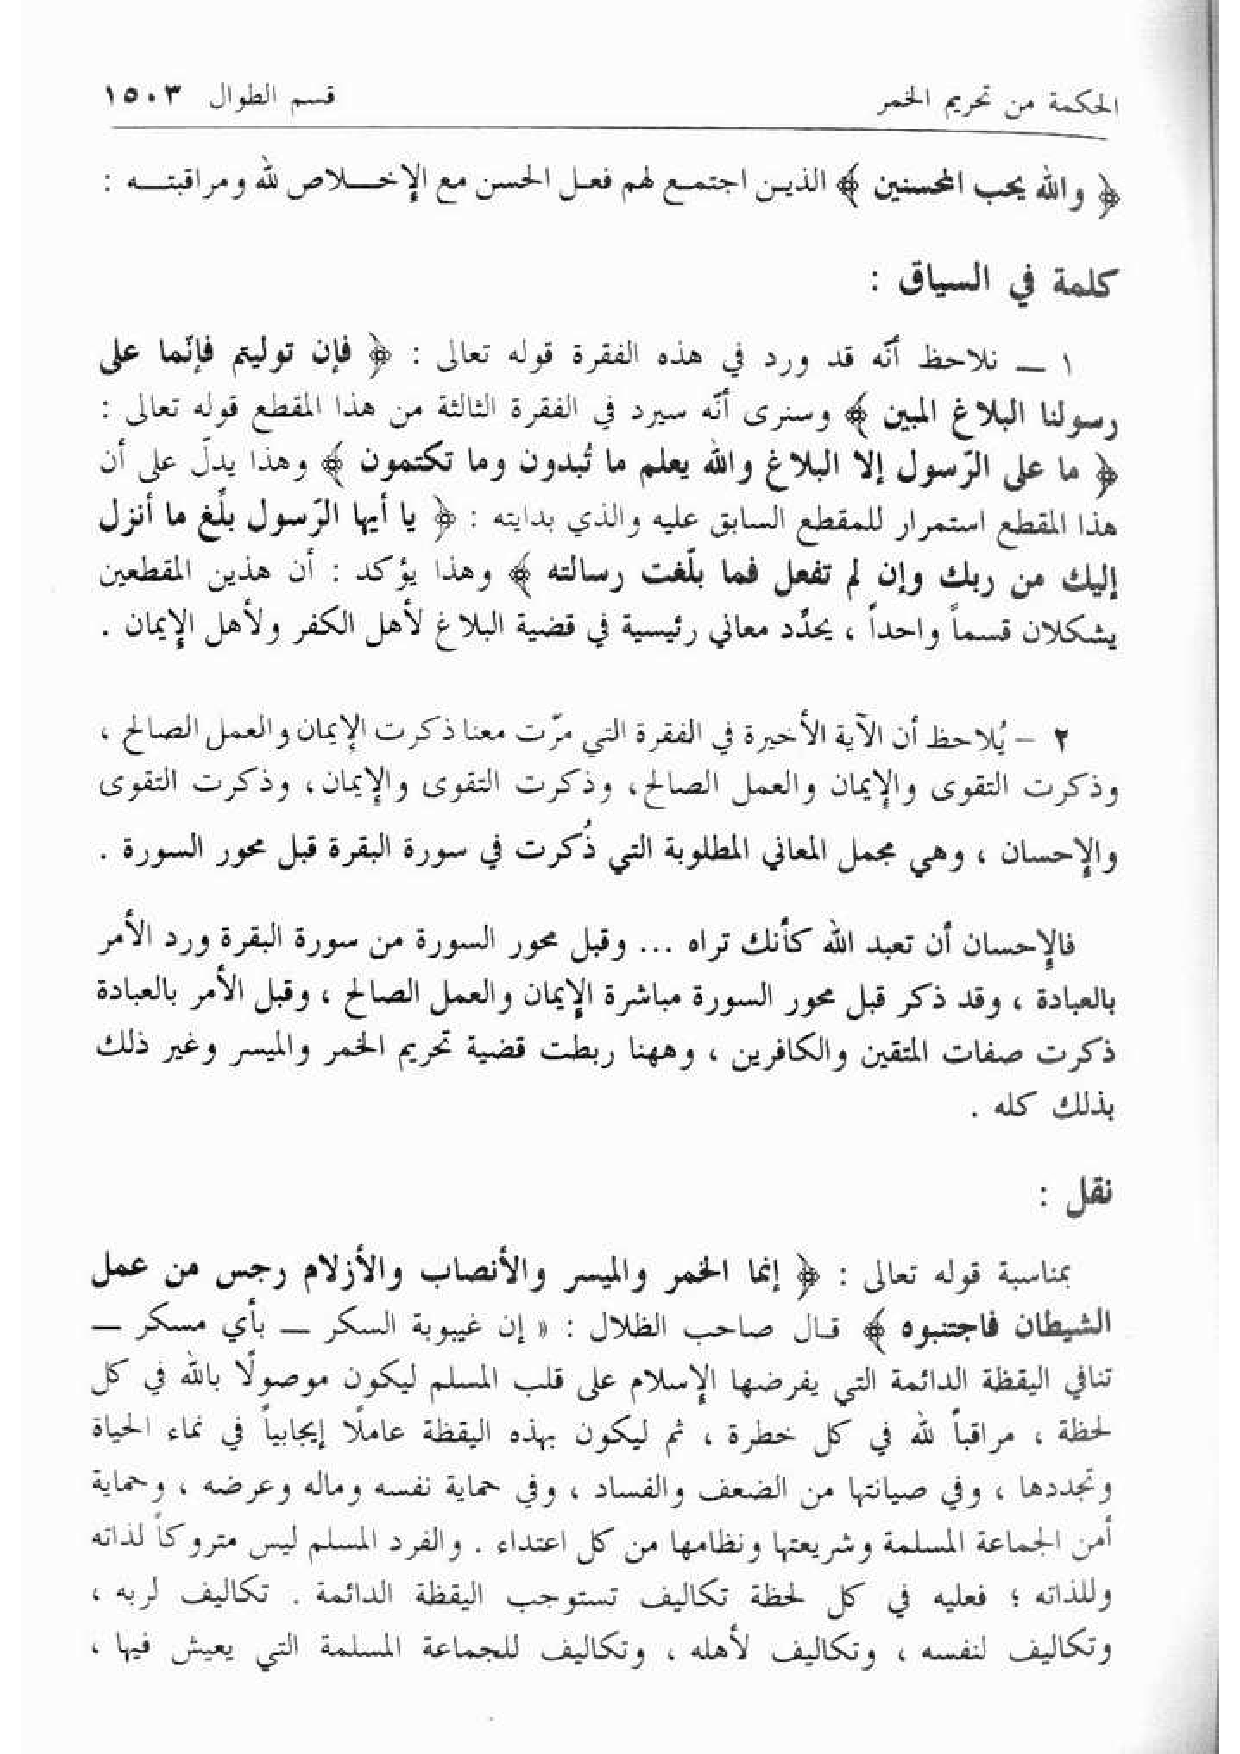 الحكمة من تحريم الخمر قسم الطوال ١٥٠٣
﴿ والله يحب المحسنين ﴾ الذين اجتمع لهم فعل الحسن مع الإخلاص لله ومراقبته :
كلمة في السياق :
١ ــ نلاحظ أنّه قد ورد في هذه الفقرة قوله تعالى : ﴿ فإن توليتم فإنّما على
رسولنا البلاغ المبين ﴾ وسنرى أنّه سيرد في الفقرة الثالثة من هذا المقطع قوله تعالى :
﴿ ما على الرّسول إلا البلاغ والله يعلم ما تُبدون وما تكتمون ﴾ وهذا يدلّ على أن
هذا المقطع استمرار للمقطع السابق عليه والذي بدايته : ﴿ يا أيها الرّسول بلّغ ما أنزل
إليك من ربك وإن لم تفعل فما بلّغت رسالته ﴾ وهذا يؤكد : أن هذين المقطعين
يشكلان قسماً واحداً ، يحدِّد معاني رئيسية في قضية البلاغ لأهل الكفر ولأهل الإيمان .
٢ – يُلاحظ أن الآية الأخيرة في الفقرة التي مرّت معنا ذكرت الإيمان والعمل الصالح ،
وذكرت التقوى والإيمان والعمل الصالح، وذكرت التقوى والإيمان، وذكرت التقوى
والإحسان ، وهي مجمل المعاني المطلوبة التي ذُكرت في سورة البقرة قبل محور السورة .
فالإحسان أن تعبد الله كأنك تراه ... وقبل محور السورة من سورة البقرة ورد الأمر
بالعبادة ، وقد ذكر قبل محور السورة مباشرة الإيمان والعمل الصالح ، وقبل الأمر بالعبادة
ذكرت صفات المتقين والكافرين ، وههنا ربطت قضية تحريم الخمر والميسر وغير ذلك
بذلك كله .
نقل :
بمناسبة قوله تعالى : ﴿ إنما الخمر والميسر والأنصاب والأزلام رجس من عمل
الشيطان فاجتنبوه ﴾ قال صاحب الظلال : « إن غيبوبة السكر ــ بأي مسكر ــ
تنافي اليقظة الدائمة التي يفرضها الإسلام على قلب المسلم ليكون موصولًا بالله في كل
لحظة ، مراقباً لله في كل خطرة ، ثم ليكون بهذه اليقظة عاملًا إيجابياً في نماء الحياة
وتجددها ، وفي صيانتها من الضعف والفساد ، وفي حماية نفسه وماله وعرضه ، وحماية
أمن الجماعة المسلمة وشريعتها ونظامها من كل اعتداء . والفرد المسلم ليس متروكاً لذاته
وللذاته ؛ فعليه في كل لحظة تكاليف تستوجب اليقظة الدائمة . تكاليف لربه ،
وتكاليف لنفسه ، وتكاليف لأهله ، وتكاليف للجماعة المسلمة التي يعيش فيها ،